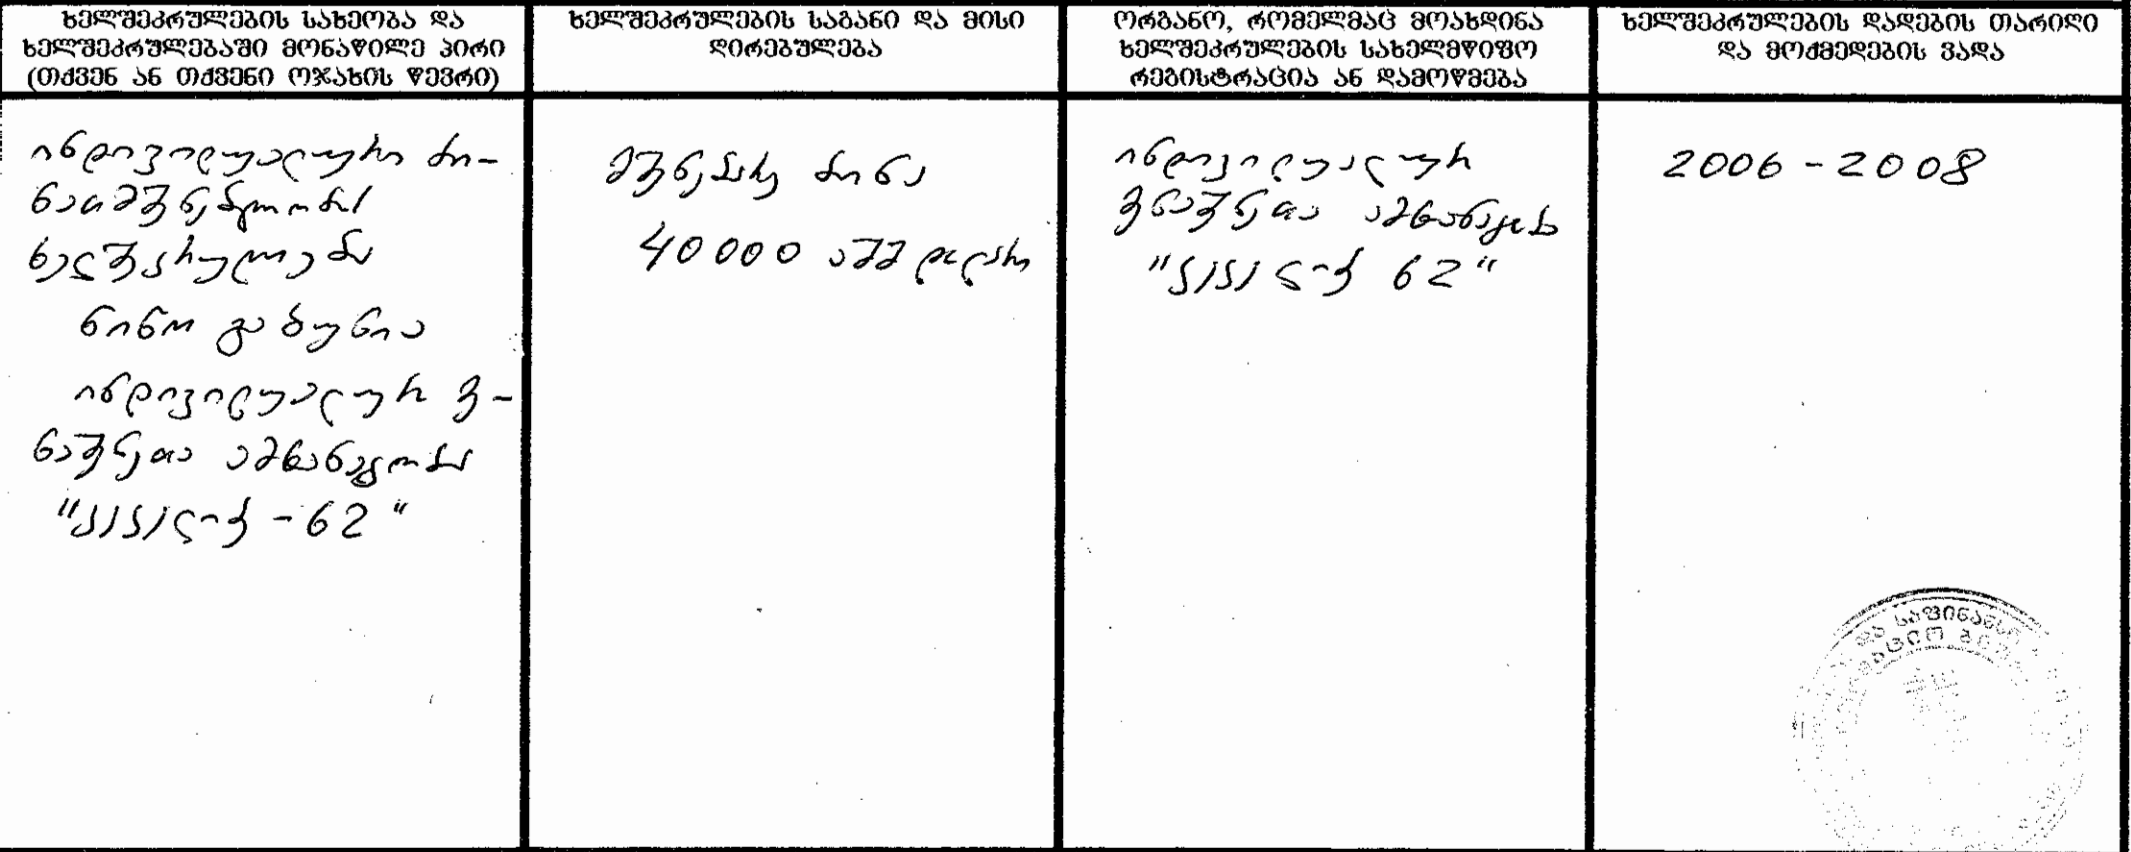 ხელშეკრულების სახეობა და
ხელშეკრულებაში მონაწილე პირი
(თქვენ ან თქვენი ოჯახის წევრი)
ხელშეკრულების საგანი და მისი
ღირებულება
ორგანო, რომელმაც მოახდინა
ხელშეკრულების სახელმწიფო
რეგისტრაცია ან დამოწმება
ხელშეკრულების დადების თარიღი
და მოქმედების ვადა
ინდივიდუალური ბი-
ნათმშენებლობის
ხელშეკრულება
ნინო გაბუნია
ინდივიდუალურ მ-
ნაშენთა ამხანაგობა
"-62"
მშენებარე ბინა
40000 აშშ დოლარი
ინდივიდუალურ
ამხანაგობ
"62"
2006-2008
და საფინანსო